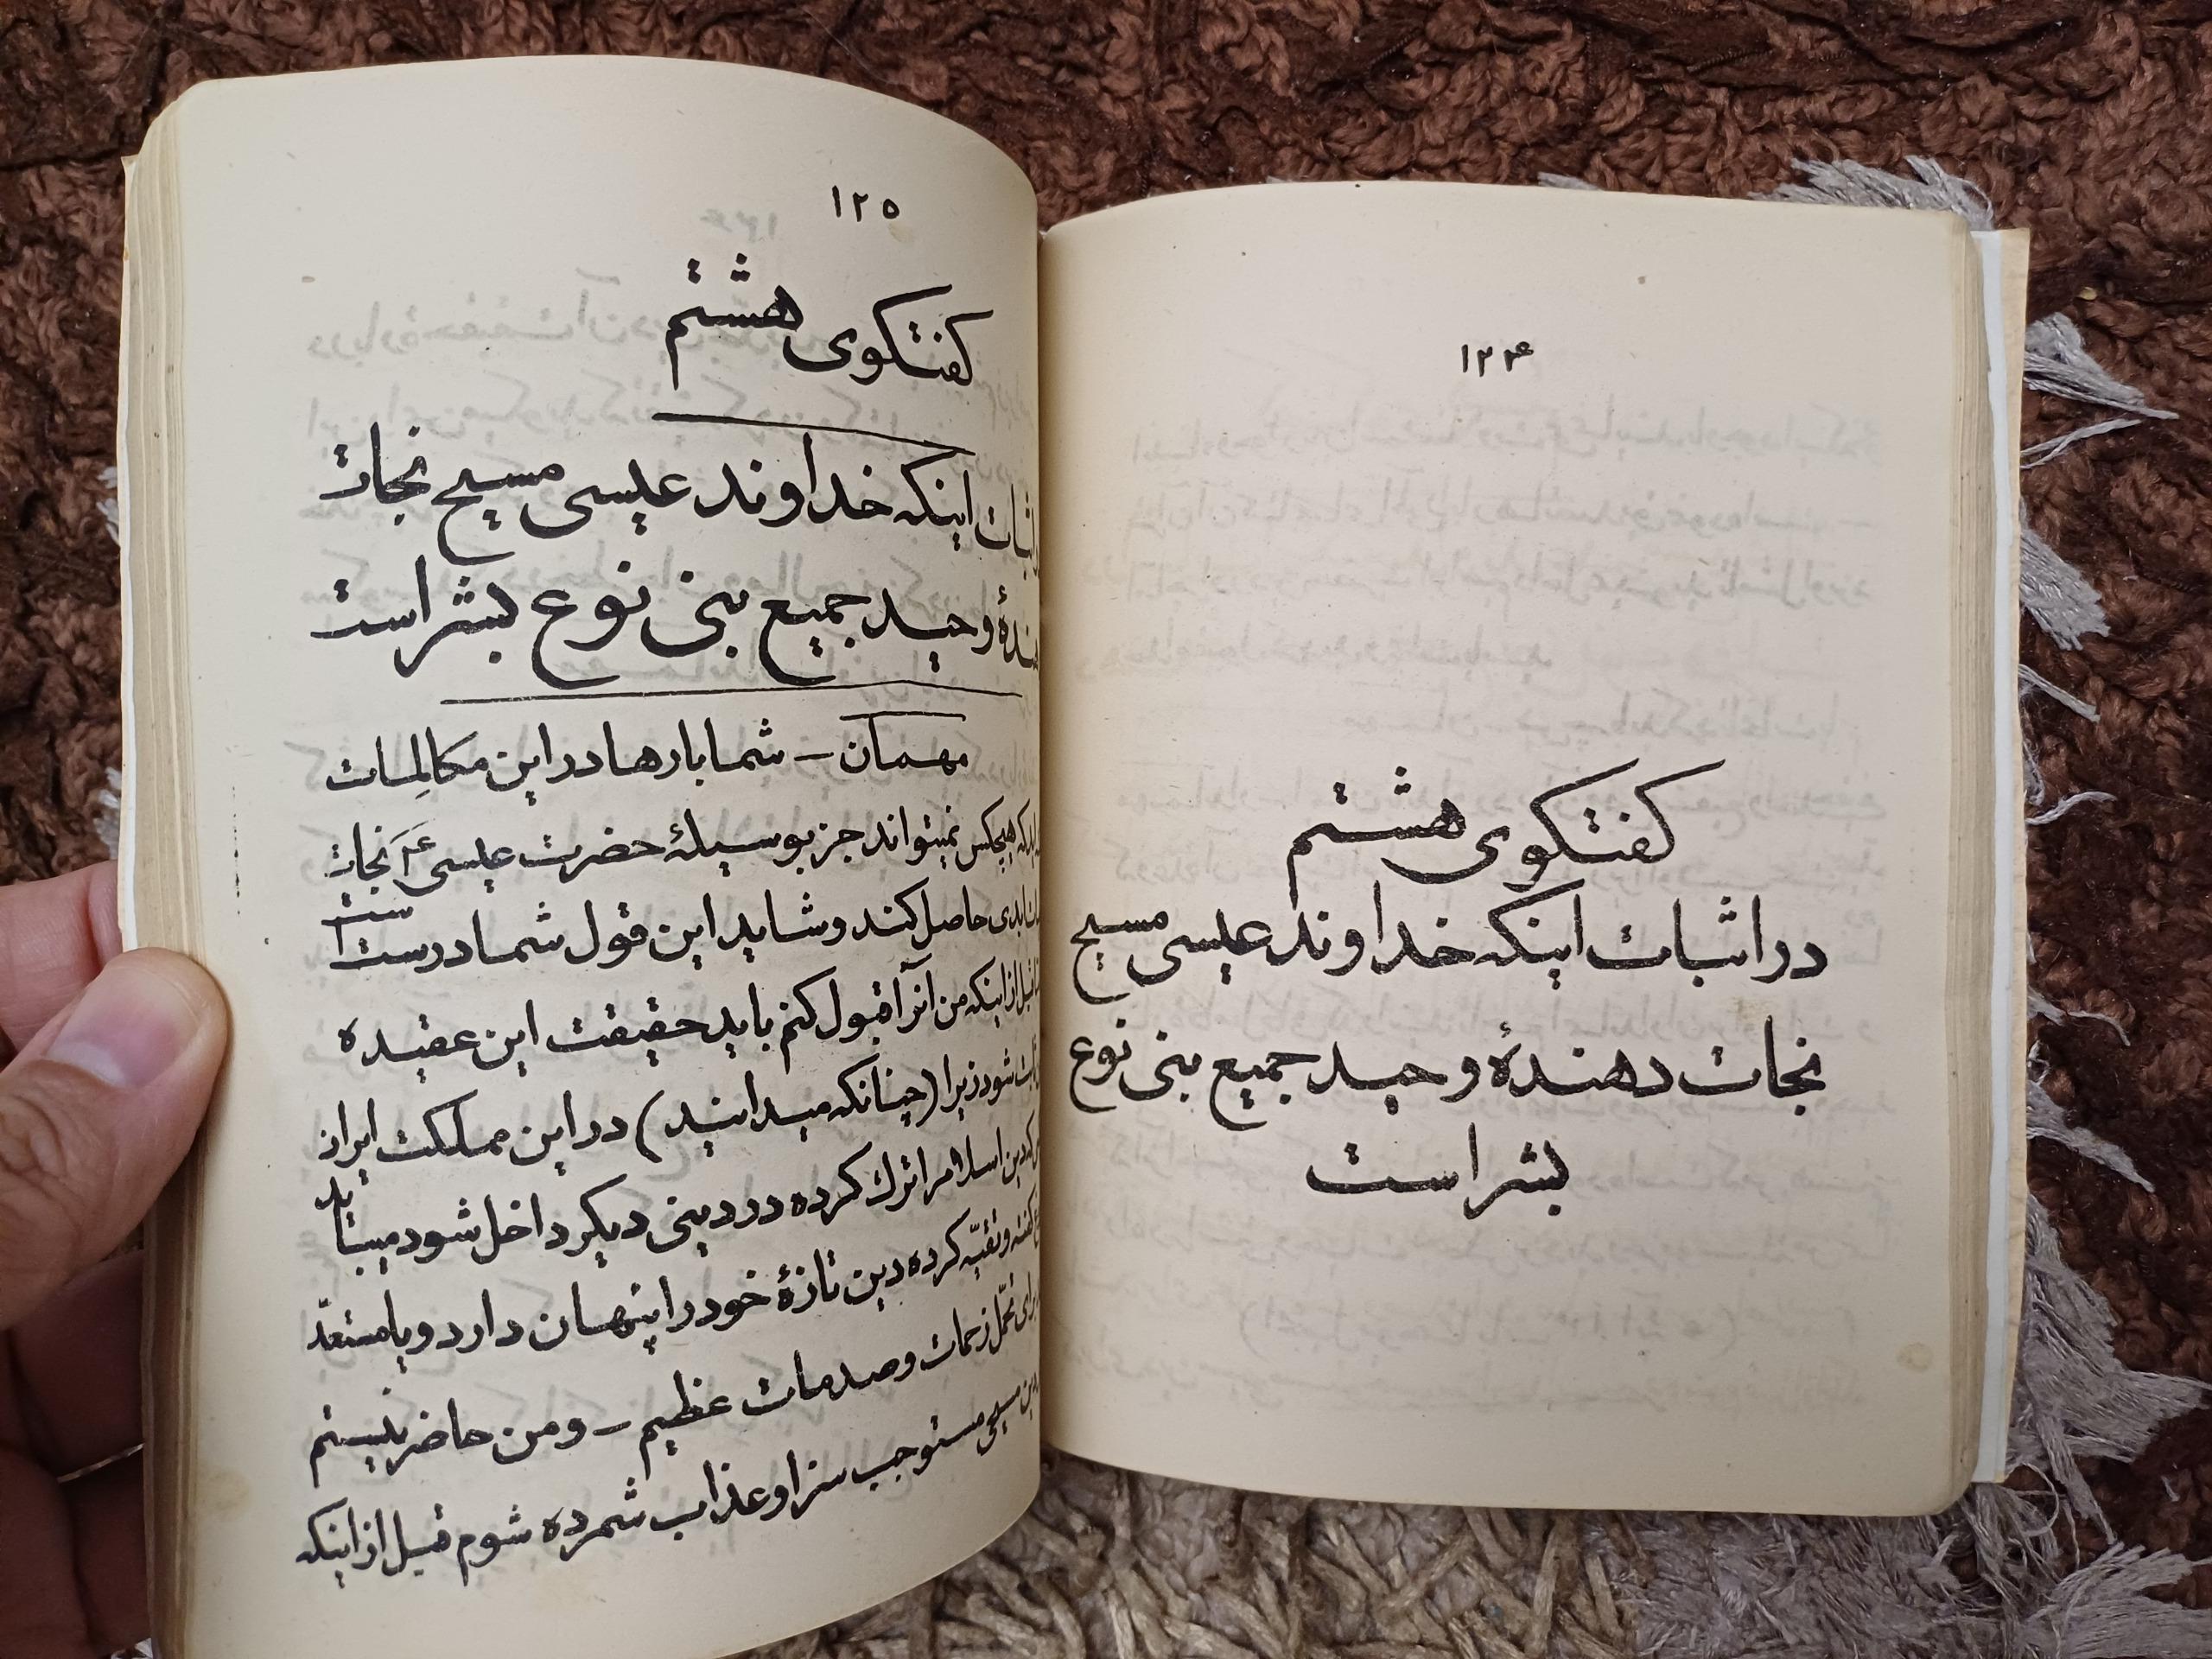 ۱۲۴
کفتکوی هشتم
در اثبات اینکه خداوند عیسی مسیح
نجات دهندهٔ وحید جمیع بنی نوع
بشر است
۱۲۵
کفتکوی هشتم
اثبات اینکه خداوند عیسی مسیح نجات
هندهٔ وحید جمیع بنی نوع بشر است
مهمان – شما بارها در این مکالمات
که هیچکس نمیتواند جز بوسیلهٔ حضرت عیسی نجات
ابدی حاصل کند و شاید این قول شما درست است
قبل از اینکه من آنرا قبول کنم باید حقیقت این عقیده
شود زیرا (چنانکه میدانید) در این مملکت ایران
که دین اسلام را ترك کرده در دینی دیکر داخل شود میباید
کفته و تقیّه کرده دین تازهٔ خود را پنهان دارد و یا مستعدّ
برای تحمّل زحمات و صدمات عظیم – و من حاضر نیستم
دین مسیحی مستوجب سزا و عذاب شمرده شوم قبل از اینکه